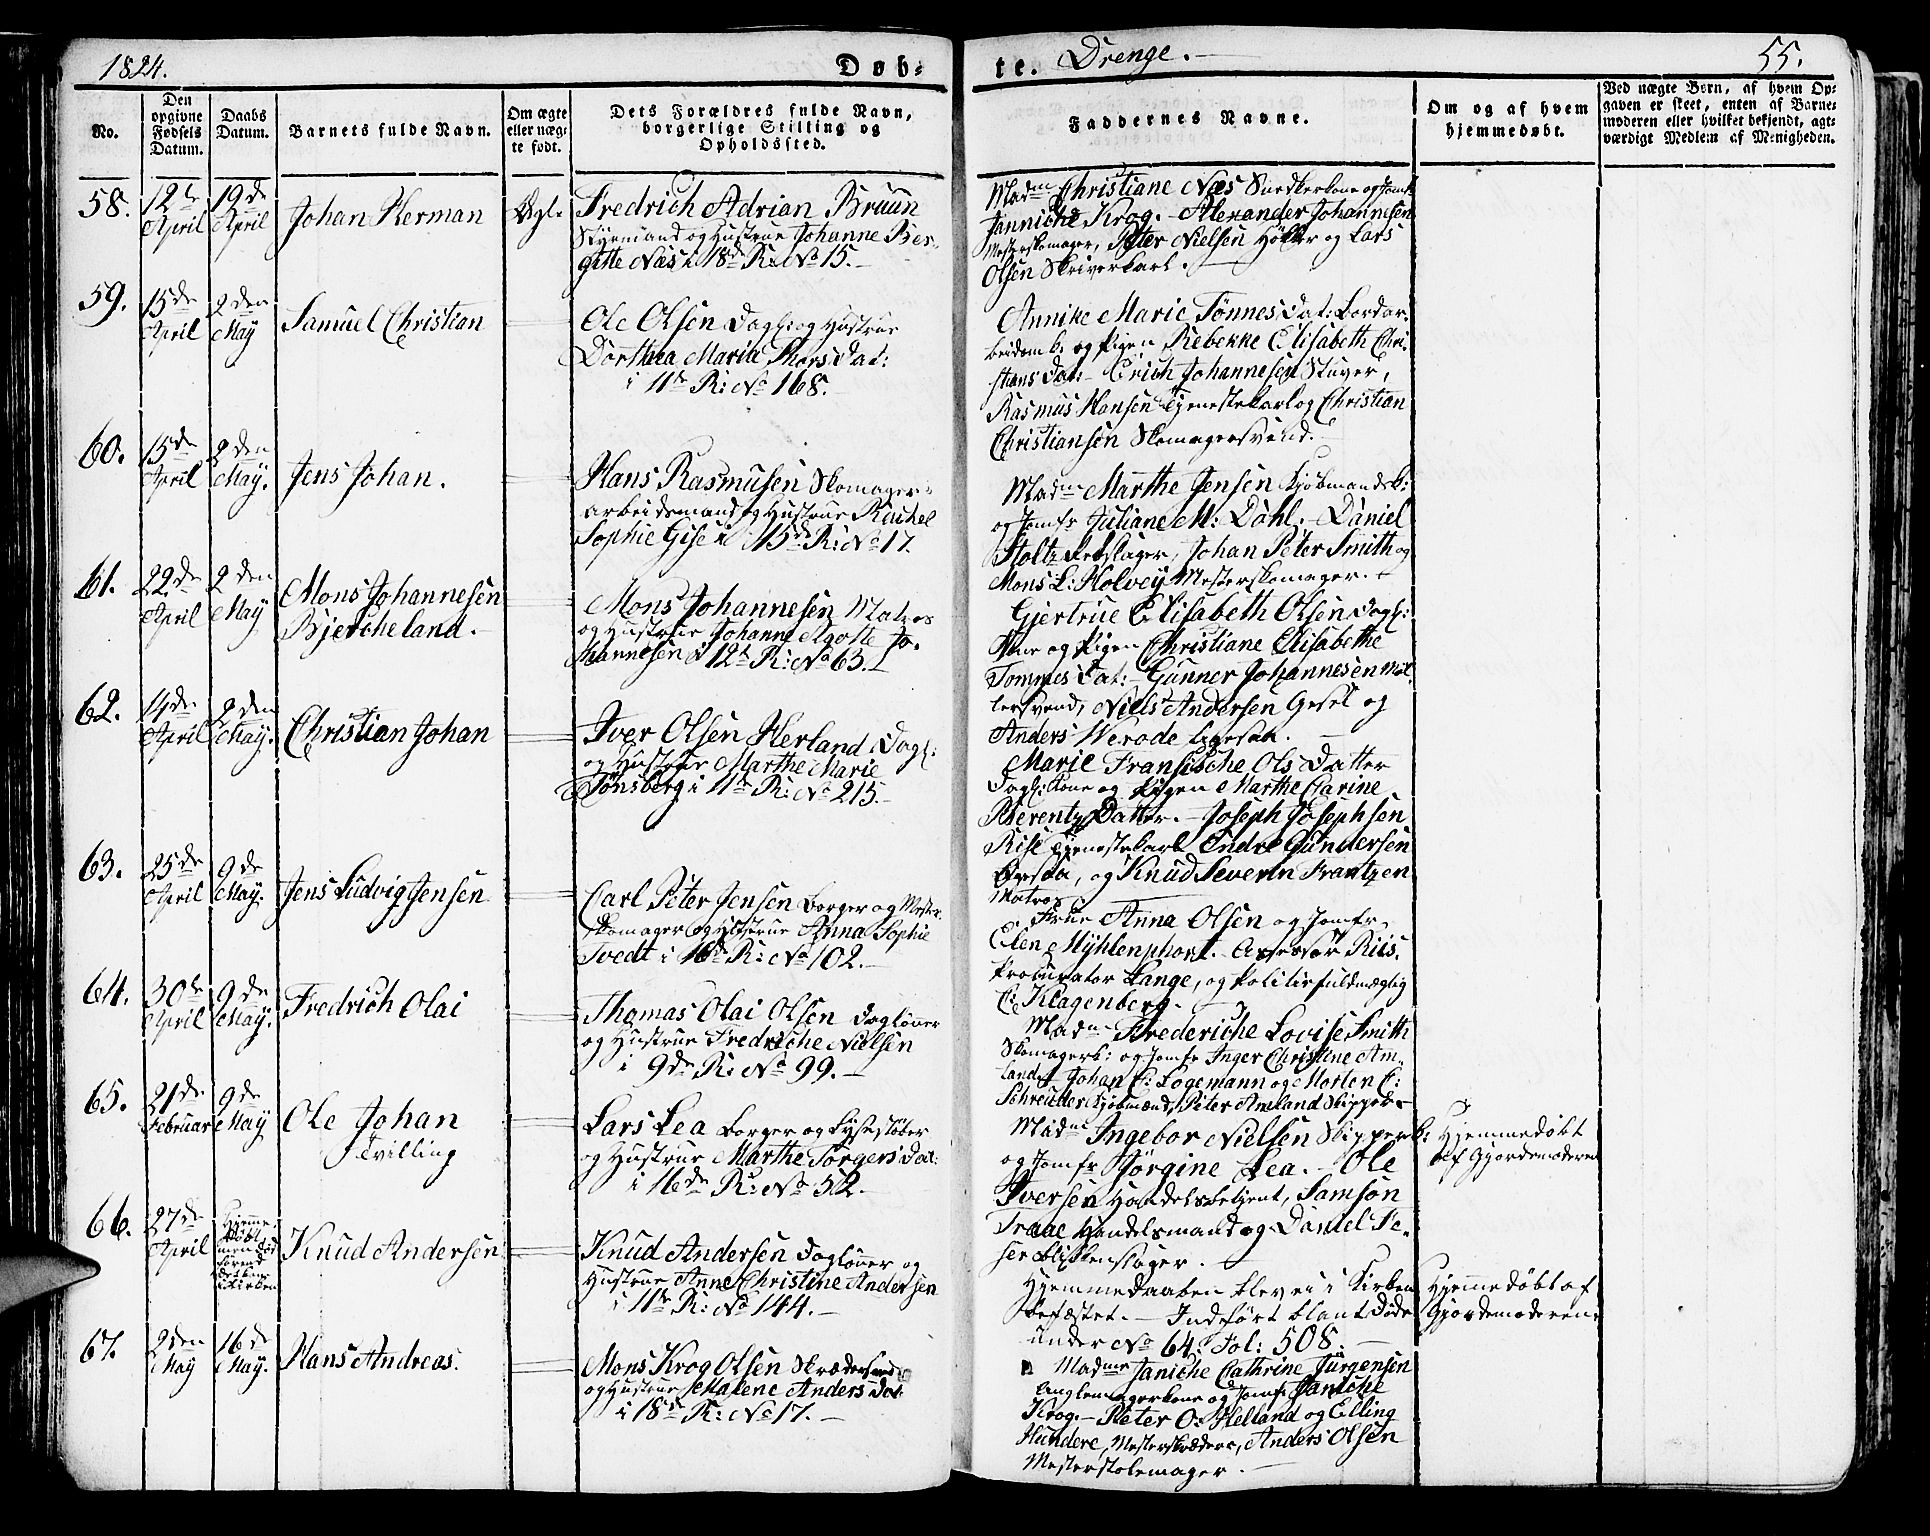 1824.
Døb-
te. Drenge.
55.
No.
Den opgivne Fødsels Datum.
Daabs Datum.
Barnets fulde Navn.
Om ægte eller uæg-
te født.
Dets Forældres fulde Navn,
borgerlige Stilling og
Opholdssted.
Faddernes Navne.
Om og af hvem
hjemmedøbt.
Ved uægte Børn, af hvem Op-
gaven er skeet, enten af Barne-
moderen eller hvilket bekjendt, agt-
værdigt Medlem af Menigheden.
58.
12te April
19de April
Johan Herman
Ægt.
Fredrich Adrian Bruun
Styrmand og Hustrue Johanne Ber-
gitte Næs i 18de R: No 15.
Madme Christiane Næs Snedkerkone og Jomf:
Janniche Krog. - Alexander Johannesen
Mesterskomager, Peter Nielsen Høker og Lars
Olsen Skriverkarl.
59.
15de April
2den May
Samuel Christian
Ole Olsen Dagl: og Hustrue
Dorthea Maria Thorsdat:
i 11te R: No 168.
Annike Marie Tønnesdat: Bordar-
beidem k: og Pigen Rebekke Elisabeth Chri-
stians Dat: - Erich Johannesen Stuver,
Rasmus Hansen Tjenestekarl og Christian
Christiansen Skomagersvend.
60.
15de April
2den May.
Jens Johan.
Hans Rasmusen Skomager-
arbeidsmand og Hustrue Rachel
Sophie Gise i 15de R: No 17.
Madme Marthe Jensen Kjøbmandsk:
og Jomfr Juliane M: Dahl. - Daniel
Stoltz Rebslager, Johan Peter Smith og
Mons L: Holvey Mesterskomager.
61.
22de April
2den May
Mons Johannesen
Bjercheland.
Mons Johannesen Matros
og Hustrue Johanne Agotte Jo-
hannesen i 12te R: No 63.
Gjertrue Elisabeth Olsen Dagl:
Kone og Pigen Christiane Elisabethe
Tommesdat: - Gunner Johannesen Møl-
lersvend, Niels Andersen Gesel og
Anders Werøde ligesaa.
62.
14de April
2den May.
Christian Johan
Iver Olsen Herland Dagl:
og Hustrue Marthe Marie
Tønsberg i 11te R: No 215.
Marie Fransische Ols Datter
Dagl: Kone og Pigen Marthe Carine
Berentz Datter. - Joseph Josephsen
Rise Tjenestekarl Endre Gundersen
, og Knud Severin Frantzen
Matros
63.
25de April
9de May.
Jens Ludvig Jensen
Carl Peter Jensen Borger og Mester-
skomager og Hustrue Anna Sophie
Tvedt i 16de R: No 102.
Frue Anna Olsen og Jomfr
Elen Myhlenphort. - Assessor Riis,
Procurator Lange, og Politiefuldmægtig
C: Klagenberg.
64.
30te April
9de May.
Fredrich Olai
Thomas Olai Olsen Dagløner
og Hustrue Fredriche Nielsen
i 9de R: No 99.
Madme Frederiche Lovise Smith
Skomagerk: og Jomfr Inger Christine Am-
land. - Johan C: Logemann og Morten C:
Schreuder Kjøbmænd, Peter Amland Skipper.
65.
21de Februar
9de May
Ole Johan
Tvilling
Lars Lea Borger og Lysestøber
og Hustrue Marthe Torgersdat:
i 16de R: No 52.
Madme Ingebor Nielsen Skipperk:
og Jomfr Jørgine Lea. - Ole
Iversen Handelsbetjent, Samson
Traae Handelsmand og Daniel Fe-
ser Blikkenslager.
Hjemmedøbt
af Gjordemoderen
66.
27de April
Hjemme-
døbt
men død
førend
i Kirken
Knud Andersen
Knud Andersen Dagløner og
Hustrue Anne Christine Andersen
i 11te R: No 144.
Hjemmedaaben blev ei i Kirken
befæstet. - Indført blant Døde
under No 64. Fol: 508.
Hjemmedøbt af
Gjordemoderen
67.
2den May
16de May.
Hans Andreas.
Mons Krog Olsen Skrædersvend
og Hustrue Malene Andersdat
i 18de R: No 17.
Madme Janiche Cathrine Jürgensen
kone og Jomfr Janiche
Krog. - Peter O: Helland og Elling
Hundere, Mesterskrædere, Anders Olsen
Mesterstolemager.